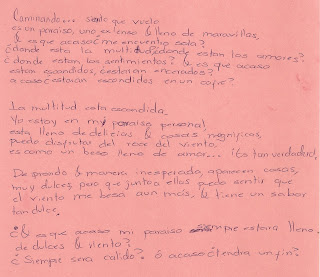 Caminando... siento que vuelo
es un paraiso, uno extenso & lleno de maravillas,
& es que acaso me encuentro sola?
¿donde esta la multitud, donde estan los amores?
¿donde estan los sentimientos? & es que acaso
estan escondidos, ó estaran encerrados?
a caso estarán escondidos en un cofre?
La multitud esta escondida.
Yo estoy en my paraiso personal
esta lleno de delicias & cosas magnificas,
puedo disfrutar del roce del viento,
es como un beso lleno de amor... ¡Es tan verdadero!,
De pronto & manera inesperada, aparecen cosas,
muy dulces, pero que junto a ellas puedo sentir que
el viento me besa aun más, & tiene un sabor
tan dulce.
¿& es que acaso mi paraiso siempre estara lleno
de dulces & viento?
¿Siempre sera calido? ó acaso ¿tendra un fin?